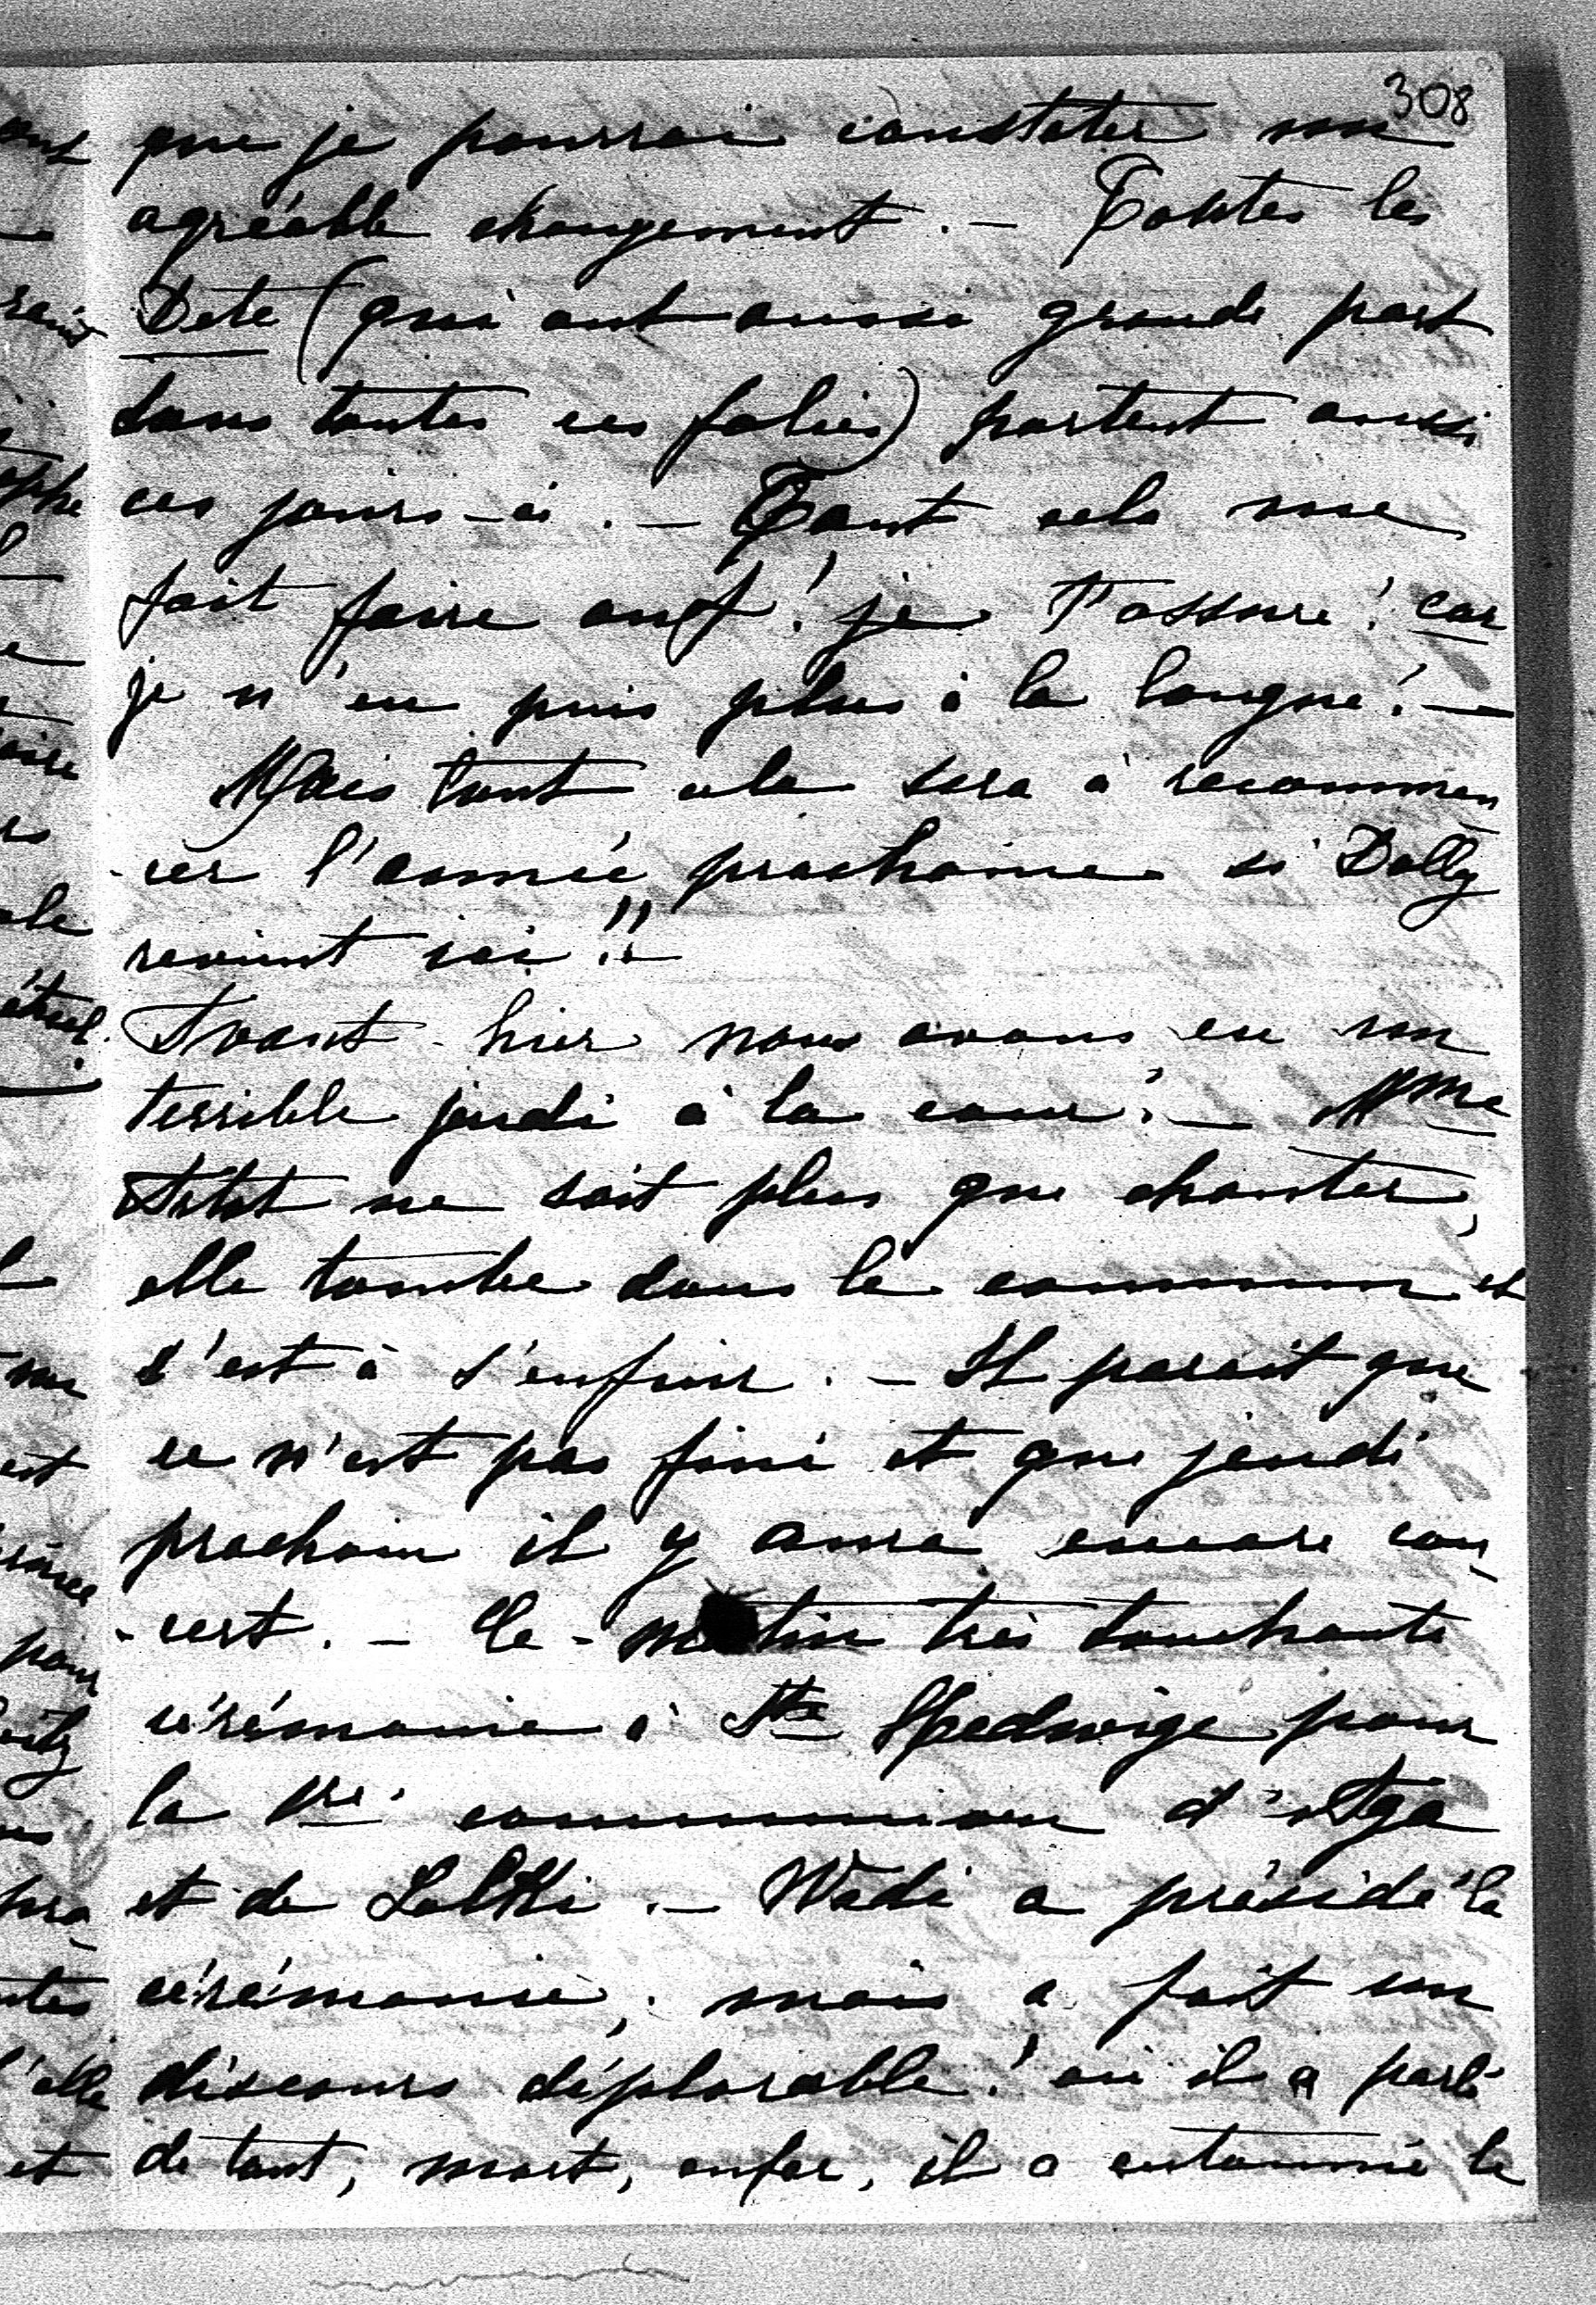 308
que je pourrai constater un
agréable changement. — Toutes les
Dete (qui ont aussi grande part
dans toutes ces folies) partent aussi
ces jours-ci. — Tout cela me
fait faire ouf! je t'assure! car
je n'en puis plus à la longue! —
Mais tout cela sera à recommen
-cer l'année prochaine si Dolly
revient ici!! —
Avant-hier nous avons eu un
terrible jeudi à la cour! — Mme
ne sait plus que chanter,
elle tombe dans le commun et
c'est à s'enfuir. — Il parait que
ce n'est pas fini et que jeudi
prochain il y aura encore con
-cert. — Ce - matin très touchante
cérémonie à Ste Hedwige pour
la 1re communion d'Aga
et de Lolki. — Wedi a présidé la
cérémonie, mais a fait un
discours déplorable! où il a parlé
de tout, mort, enfer, il a entonné le